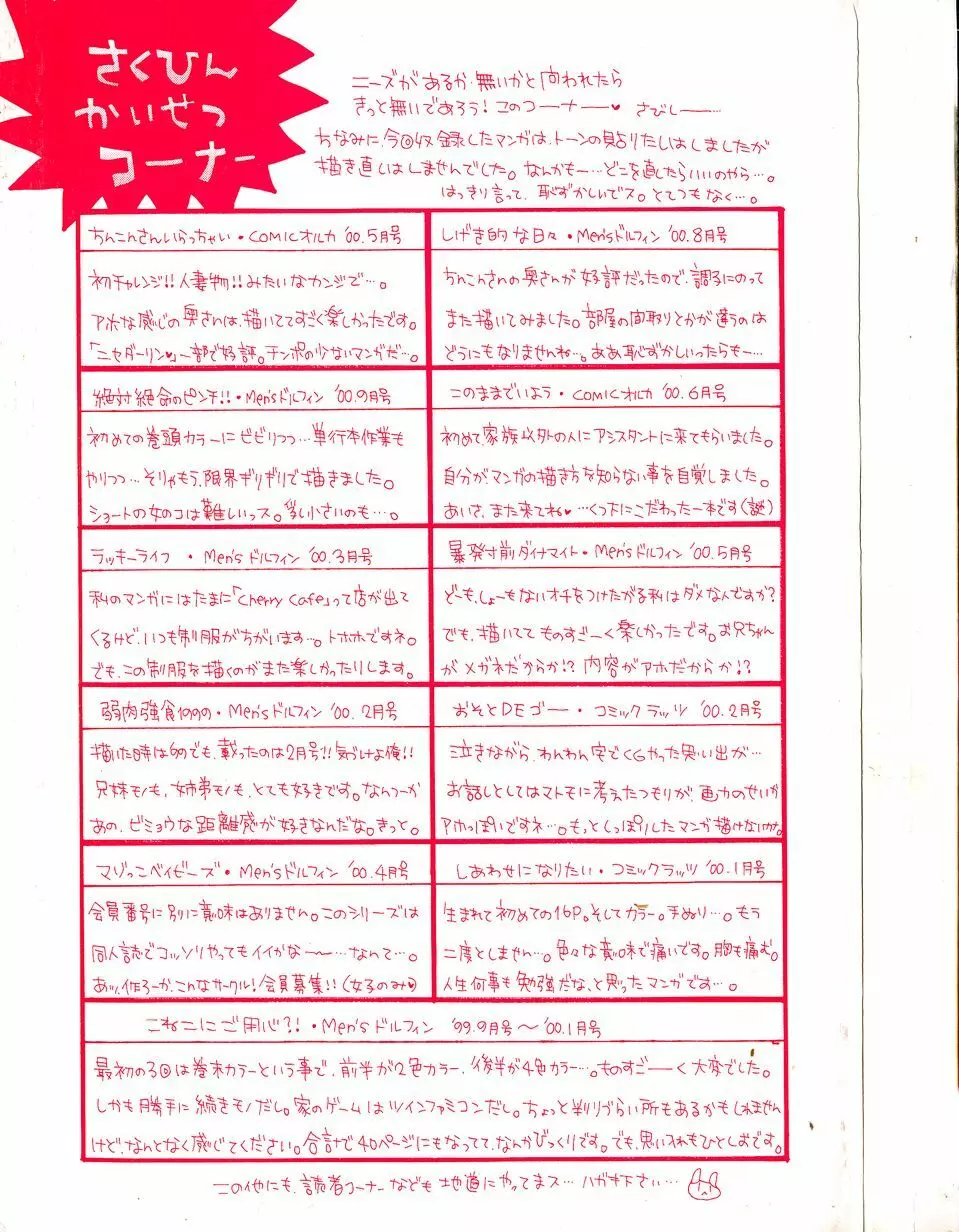 さくひん
かいせつ
コーナー
ニーズがあるか無いかと問われたら
きっと無いであろう!このコーナー♥ さびしー…
ちなみに、今回収録したマンガは、トーンの貼りたしはしましたが
描き直しはしませんでした。なんかもー…どこを直したらいいのやら…。
はっきり言って、恥ずかしいでス。とてつもなく…。
ちんこんさんいらっちゃい・COMICオルカ '00.5月号
初チャレンジ!!人妻物!!みたいなカンジで…。
アホな感じの奥さんは、描いててすごく楽しかったです。
「ニセダーリン♥」一部で好評。チンポの少ないマンガだ…。
しげき的な日々・Men'sドルフィン '00.8月号
ちんこんさんの奥さんが好評だったので、調子にのって
また描いてみました。部屋の間取りとかが違うのは
どうにもなりませんね…。ああ恥ずかしいったらもー…
絶対絶命のピンチ!!・Men'sドルフィン '00.9月号
初めての巻頭カラーにビビりつつ…単行本作業も
やりつつ…そりゃもう、限界ギリギリで描きました。
ショートの女のコは難しいっス。乳小さいのも…。
このままでいよう・COMICオルカ '00.6月号
初めて家族以外の人にアシスタントに来てもらいました。
自分がマンガの描き方を知らない事を自覚しました。
あいさ、また来てね♥…くつ下にこだわった一本です(謎)
ラッキーライフ ・Men'sドルフィン '00.3月号
私のマンガにはたまに「Cherry Cafe」って店が出て
くるけど、いつも制服がちがいます…。トホホですネ。
でも、この制服を描くのがまた楽しかったりします。
暴発寸前ダイナマイト・Men'sドルフィン '00.5月号
どーも、しょーもないオチをつけたがる私はダメなんですか?
でも、描いてて ものすごーく楽しかったです。お兄ちゃん
がメガネだからか!?内容がアホだからか!?
弱肉強食1999・Men'sドルフィン '00.2月号
描いた時は99でも、載ったのは2月号!!気づけよ俺!!
兄妹モノも、姉弟モノも、とても好きです。なんつーか
あの、ビミョウな距離感が好きなんだな。きっと。
おそとDEゴー・コミックラッツ '00.2月号
泣きながら、わんわん宅でCGやった思い出が…
お話としてはマトモに考えたつもりが、画力のせいか
アホっぽいですネ…。もっとしっぽりしたマンガ描けないかな。
マゾっこベイビーズ・Men'sドルフィン '00.4月号
会員番号に別に意味はありません。このシリーズは
同人誌でコッソリやってもイイかな〜…なんて…。
あッ、作ろーか、こんなサークル!会員募集!!(女子のみ♥)
しあわせになりたい・コミックラッツ '00.1月号
生まれて初めての16P。そしてカラー。手ぬり…。もう
二度としません…。色々な意味で痛いです。胸も痛む。
人生何事も勉強だな、と思ったマンガです…。
こねこにご用心?!・Men'sドルフィン '99.9月号〜'00.1月号
最初の3回は巻末カラーという事で、前半が2色カラー、後半が4色カラー…。ものすごーく大変でした。
しかも勝手に続きモノだし。家のゲームはツインファミコンだし。ちょっと判りづらい所もあるかもしれません
けど、なんとなく感じてください。合計で40ページにもなってて、なんかびっくりです。でも、思い入れもひとしおです。
この他にも、読者コーナーなども地道にやってまス…ハガキ下さい…